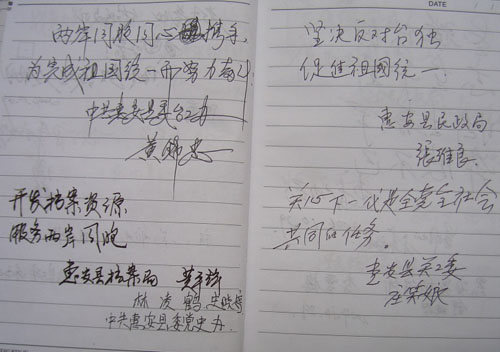 两岸同胞同心携手,
为完成祖国统一而努力奋斗
中共惠安县委台办
黄
开发档案资源
服务两岸同胞
惠安县档案局
林凌鹤
中共惠安县委党史办.
DATE
坚决反对台独
促进祖国统一
惠安县民政局
张维良.
关心下一代是全党全社会
共同的任务.
惠安县关工委
庄荣娘